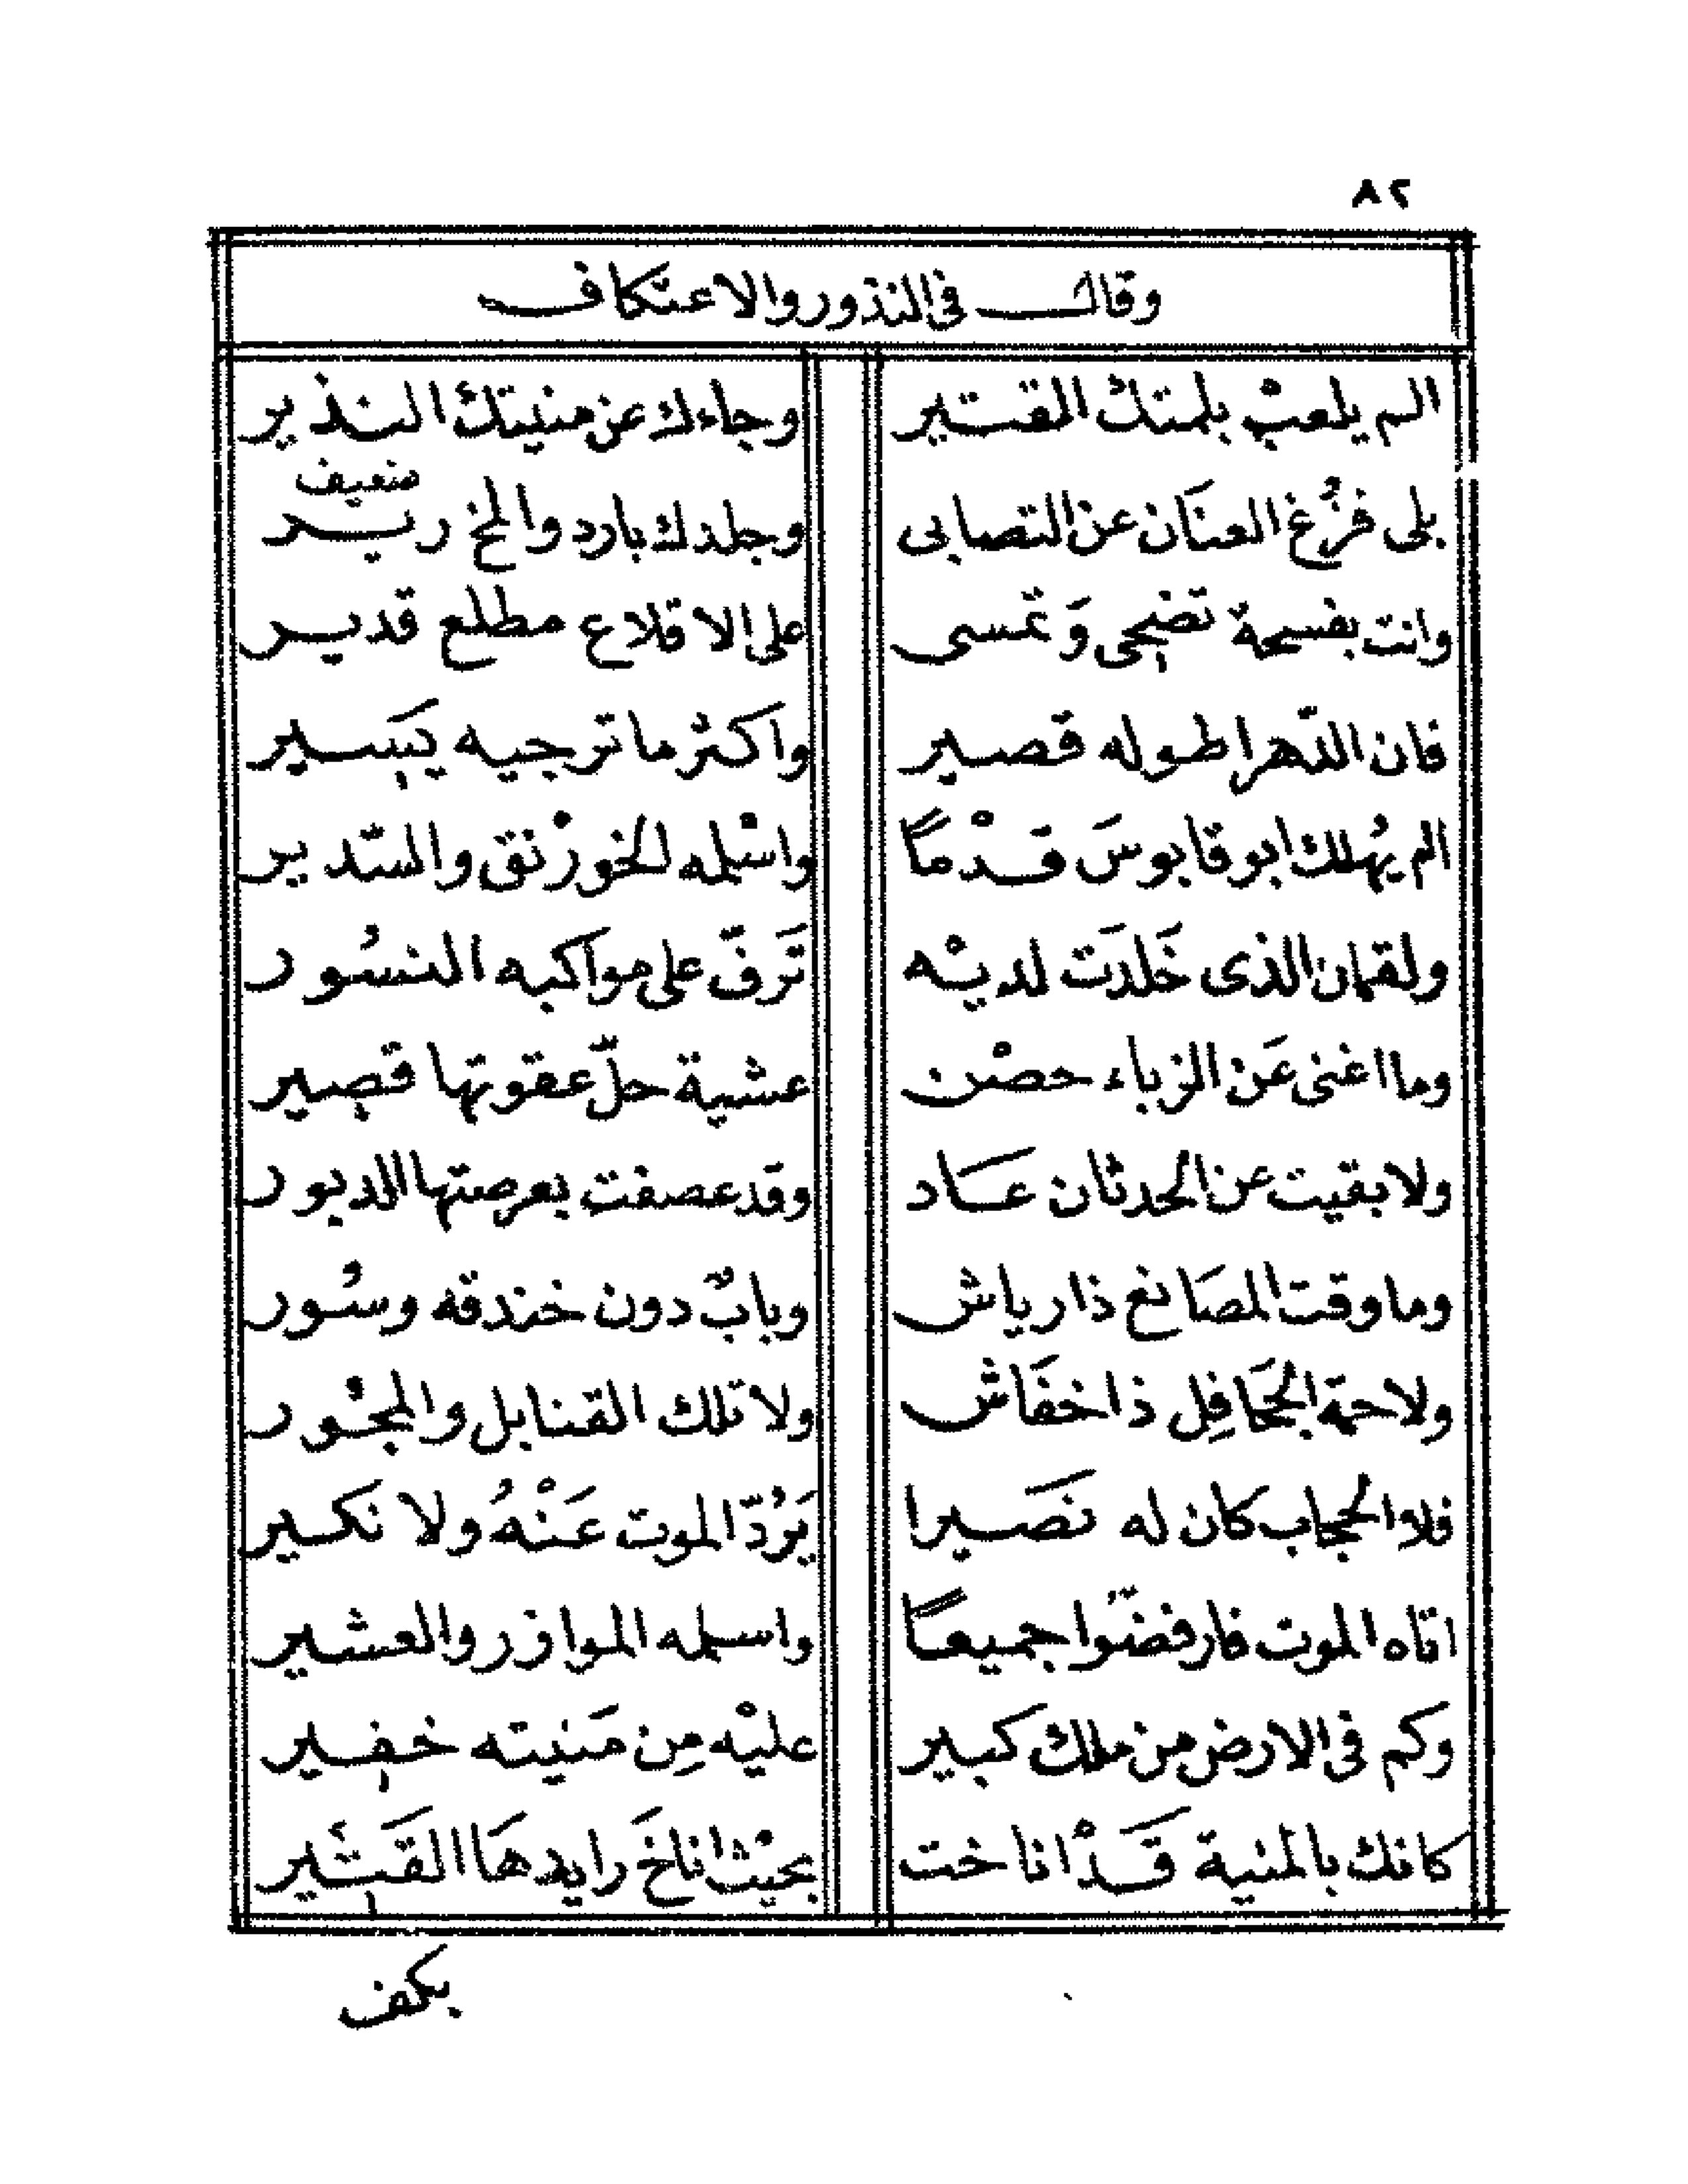 ٨٢
وقال في النذور والاعتكاف
الم يلعب بلمتك القتير وجاءك عن منيتك النذير
ضعيف
بلى فزغ العنَان عن التصابى وجلدك بارد والمخ رير
وانت بفسحة تضحى وَتمسى على الاقلاع مطلع قدير
فان الدّهر اطوله قصير واكثر ما ترجيه يَسير
الم يُهلك ابو قابوسَ قدْمًا واسْلمه الخورْنق والسّدير
ولقمان الذى خَلدَت لديْه تَرفّ على مواكبه النسُور
وما اغنى عَن الزباء حصْن عشية حلّ عقوتها قصير
ولا بقيت عن الحدثان عَاد وقد عصفت بعرصتها الدبور
وما وقت المصَانع ذا رياش وبابٌ دون خندقه وسُور
ولا حمة الجحَافِل ذا خفَاش ولا تلك القنابل والمجْور
فلا الحجاب كان له نصَيرا يَرُدّ الموت عَنْهُ ولا نكير
اتاه الموت فارفضّوا جميعًا واسلمه الموازر والعشير
وكم فى الارض من ملك كبير عليْه مِن مَنيته خفير
كانك بالمنية قَدْ اناخت بحيْث اناخَ رايدهَا القَتير
بكف